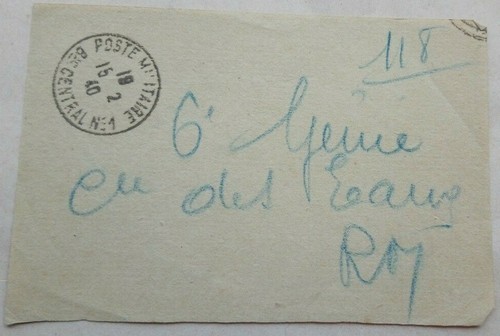 POSTE MILITAIRE
Bau CENTRAL No 1
19
15 2
40
118
6e Génie
Cie des Eaux
RM